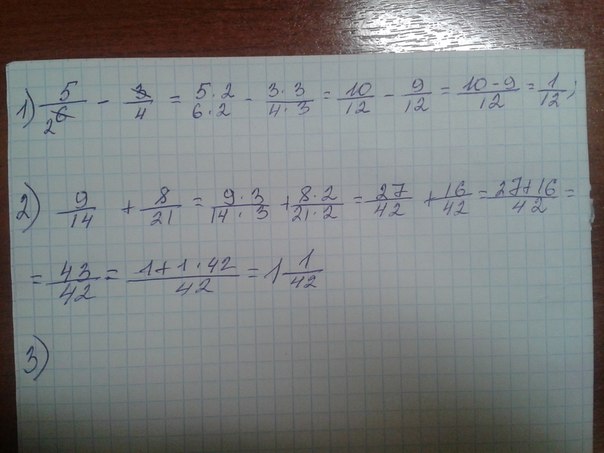 1) 5/6 - 3/4 = 5·2/6·2 - 3·3/4·3 = 10/12 - 9/12 = 10-9/12 = 1/12;
2) 9/14 + 8/21 = 9·3/14·3 + 8·2/21·2 = 27/42 + 16/42 = 27+16/42 =
= 43/42 = 1+1·42/42 = 1 1/42
3)